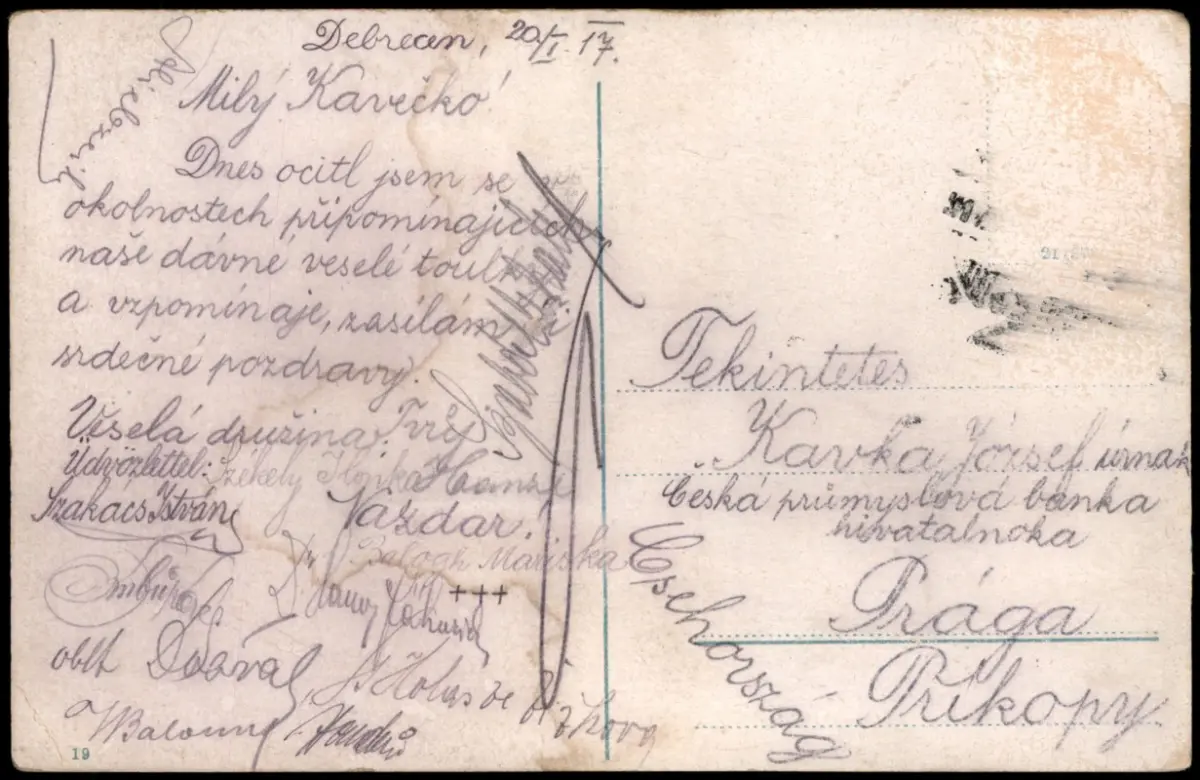 Debrecen, 20/I. 17.
Milý Kavečko!
Dnes ocitl jsem se v
okolnostech připomínajících
naše dávné veselé toulky
a vzpomínaje, zasílám Ti
srdečné pozdravy.
Veselá družina. Tvůj
Üdvözlettel: Székely Ilonka Hanzi
Szakacs István Nazdar!
Balogh Mariska
+++
oblt Dobral
St Holas ze Žižkova
Tekintetes
Kavka József úrnak
Česká průmyslová banka
hivatalnoka
Prága
Příkopy
Csehország
19